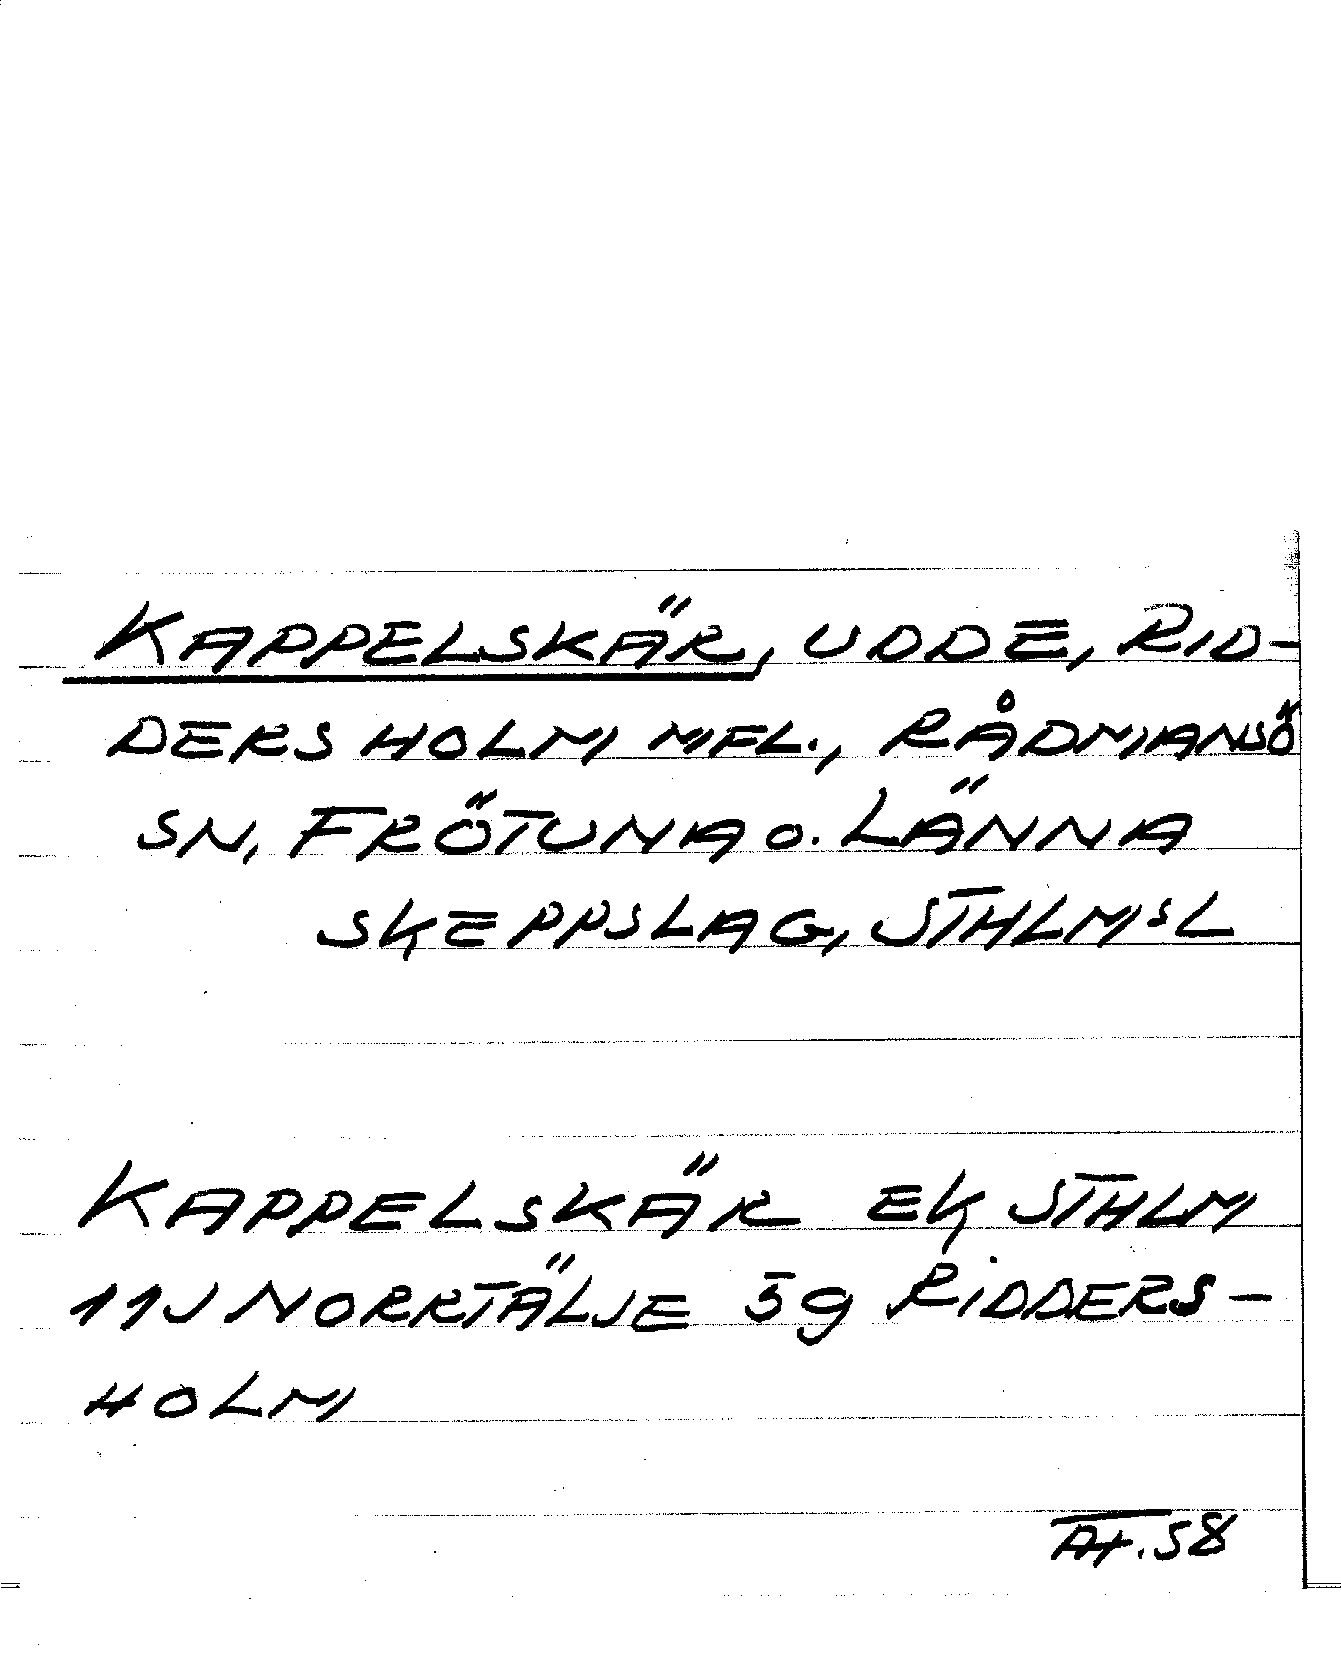 KAPPELSKÄR, UDDE, RID-
DERSHOLM M FL., RÅDMANSÖ
SN, FRÖTUNA o. LÄNNA
SKEPPSLAG, STHLMSL
KAPPELSKÄR EK STHLM
11J NORRTÄLJE 5g RIDDERS-
HOLM
.58